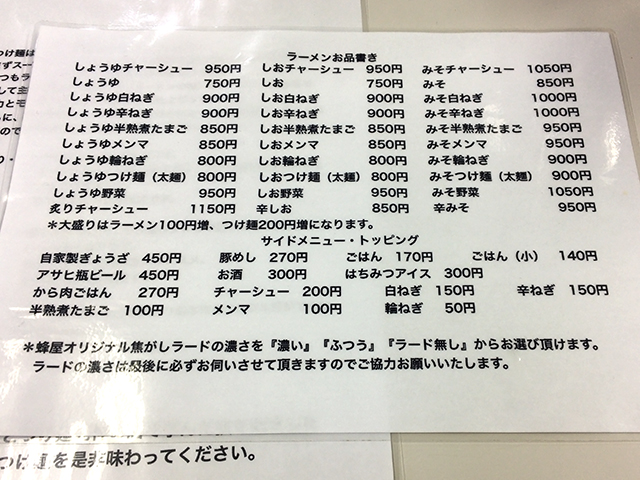 つけ麺は
ラーメンお品書き
しょうゆチャーシュー 950円 しおチャーシュー 950円 みそチャーシュー 1050円
しょうゆ 750円 しお 750円 みそ 850円
しょうゆ白ねぎ 900円 しお白ねぎ 900円 みそ白ねぎ 1000円
しょうゆ辛ねぎ 900円 しお辛ねぎ 900円 みそ辛ねぎ 1000円
しょうゆ半熟煮たまご 850円 しお半熟煮たまご 850円 みそ半熟煮たまご 950円
しょうゆメンマ 850円 しおメンマ 850円 みそメンマ 950円
しょうゆ輪ねぎ 800円 しお輪ねぎ 800円 みそ輪ねぎ 900円
しょうゆつけ麺（太麺）800円 しおつけ麺（太麺）800円 みそつけ麺（太麺）900円
しょうゆ野菜 950円 しお野菜 950円 みそ野菜 1050円
炙りチャーシュー 1150円 辛しお 850円 辛みそ 950円
＊大盛りはラーメン100円増、つけ麺200円増になります。
サイドメニュー・トッピング
自家製ぎょうざ 450円 豚めし 270円 ごはん 170円 ごはん（小） 140円
アサヒ瓶ビール 450円 お酒 300円 はちみつアイス 300円
から肉ごはん 270円 チャーシュー 200円 白ねぎ 150円 辛ねぎ 150円
半熟煮たまご 100円 メンマ 100円 輪ねぎ 50円
＊蜂屋オリジナル焦がしラードの濃さを『濃い』『ふつう』『ラード無し』からお選び頂けます。
ラードの濃さは最後に必ずお伺いさせて頂きますのでご協力お願いいたします。
つけ麺を是非味わってください。